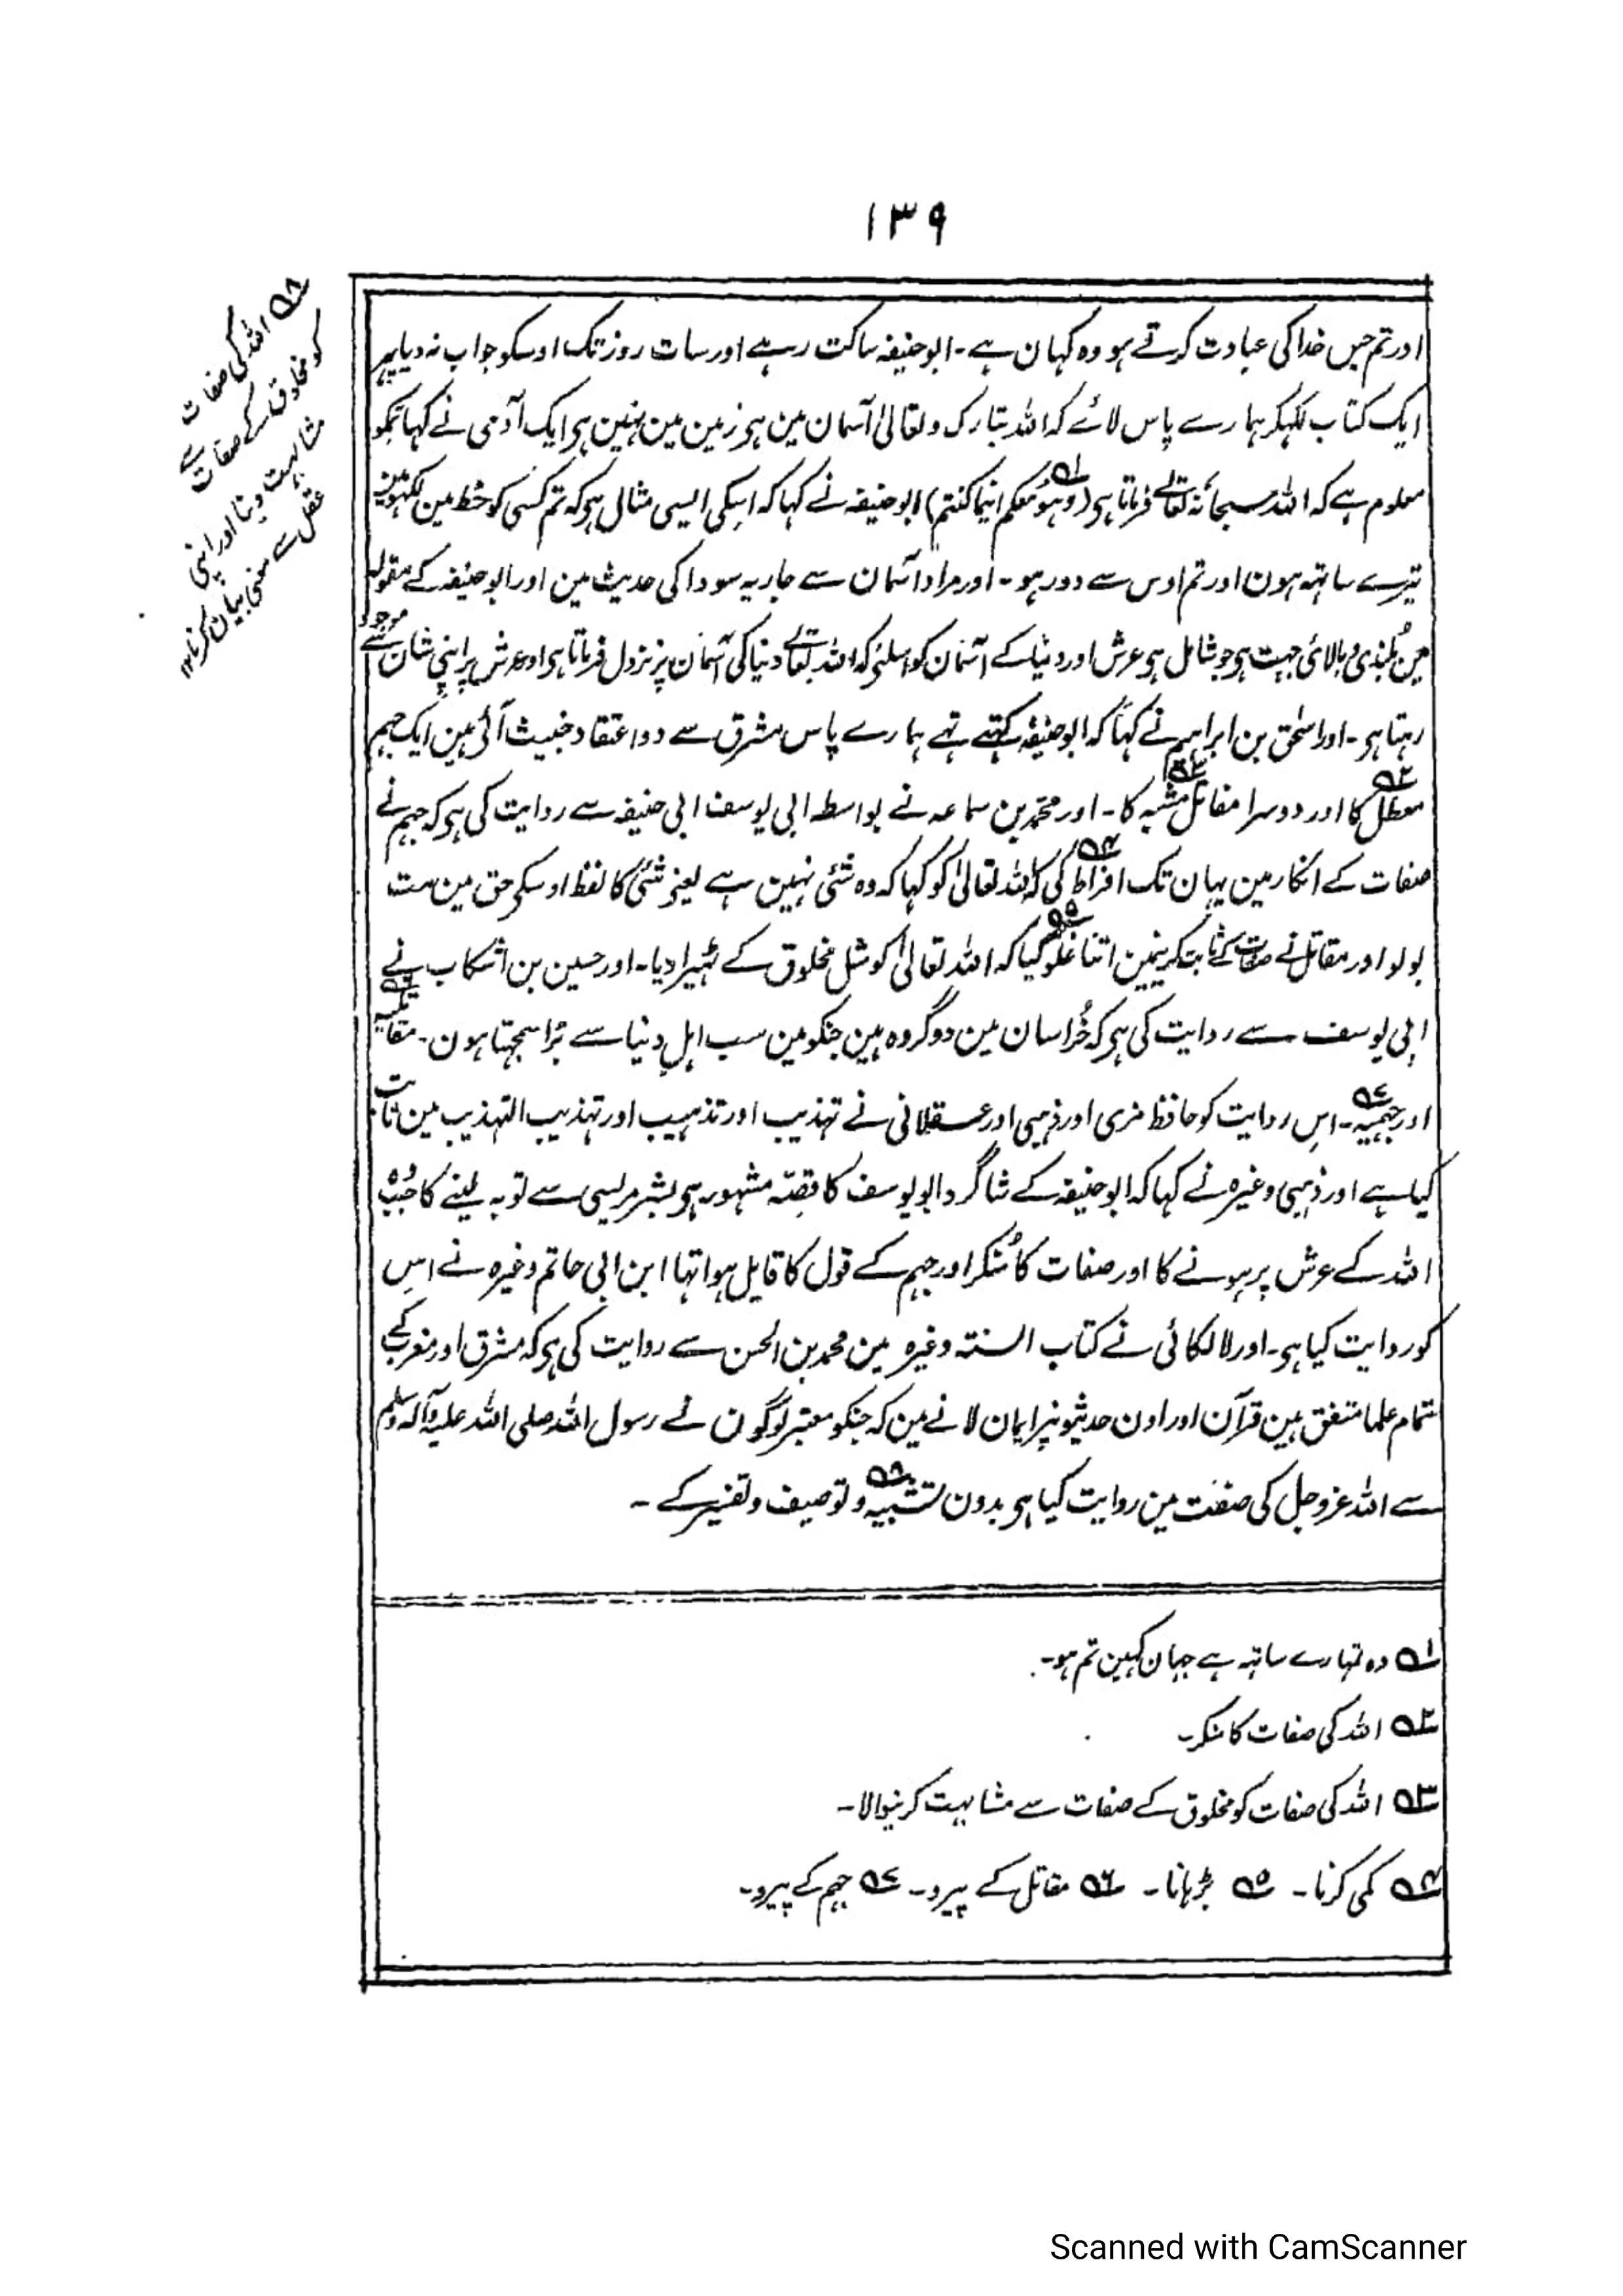 ۱۳۹
اور تم جس خدا کی عبادت کرتے ہو وہ کہان ہے ۔ ابو حنیفہ ساکت رہے اور سات روز تک اوسکو جواب نہ دیا پہر
ایک کتاب لکہکر ہمارے پاس لائے کہ اللہ تبارک و تعالیٰ آسمان مین ہی زمین مین نہین ہی ایک آدمی نے کہا تجکو
معلوم ہے کہ اللہ سبحانہ تعالے فرماتا ہی (وہو معکم اینما کنتم) ۱؎ ابو حنیفہ نے کہا کہ اسکی ایسی مثال ہی کہ تم کسی کو خط مین لکہو مین
تیرے ساتہہ ہون اور تم اوس سے دور ہو ۔ اور مراد آسمان سے جاریہ سودا کی حدیث مین اور ابو حنیفہ کے مقولہ
مین بُلندی و بالائی جہت ہی جو شامل ہی عرش اور دنیا کے آسمان کو اسلئے کہ اللہ تعالے دنیا کی آسمان پر نزول فرماتا ہی اور عرش پر اپنی شان سے موجود
رہتا ہی ۔ اور اسحٰق بن ابراہیم نے کہا کہ ابو حنیفہ کہتے تہے ہمارے پاس مشرق سے دو اعتقاد خبیث آئی ہین ایک جہم
معطل ۲؎ کا اور دوسرا مقاتل مشبہ ۳؎ کا ۔ اور محمد بن سماعہ نے بواسطہ ابی یوسف ابی حنیفہ سے روایت کی ہی کہ جہم نے
صفات کے انکار مین یہان تک افراط ۴؎ کی کہ اللہ تعالیٰ کو کہا کہ وہ شئی نہین ہے یعنے شئی کا لفظ اوسکی حق مین مت
بولو اور مقاتل نے صفات کے ثابت کرنیمین اتنا غلو ۵؎ کیا کہ اللہ تعالیٰ کو مثل مخلوق کے ٹہیرا دیا ۔ اور حسین بن اشکاب نے
ابی یوسف سے روایت کی ہی کہ خُراسان مین دو گروہ ہین جنکو مین سب اہل دنیا سے بُرا سمجہتا ہون ۔ مقاتلیہ ۶؎
اور جہمیہ ۷؎ ۔ اس روایت کو حافظ مزی اور ذہبی اور عسقلانی نے تہذیب اور تذہیب اور تہذیب التہذیب مین ثابت
کیا ہے اور ذہبی وغیرہ نے کہا کہ ابو حنیفہ کے شاگرد ابو یوسف کا قصّہ مشہور ہی بشر مریسی سے توبہ لینے کا جب وہ
اللہ کے عرش پر ہونے کا اور صفات کا مُنکر اور جہم کے قول کا قایل ہوا تہا ابن ابی حاتم وغیرہ نے اس
کو روایت کیا ہی ۔ اور لالکائی نے کتاب السنۃ وغیرہ مین محمد بن الحسن سے روایت کی ہی کہ مشرق اور مغرب کے
تمام علما متفق ہین قرآن اور اون حدیثونپر ایمان لانے مین کہ جنکو معتبر لوگون نے رسول اللہ صلی اللہ علیہ وآلہ وسلم
سے اللہ عزوجل کی صفت مین روایت کیا ہی بدون تشبیہ ۸؎ و توصیف و تفسیر کے ۔
۸؎ اللہ کی صفات
کو مخلوق کے صفات سے
مشابہت دینا اور اپنی
عقل سے معنی بیان کرنا ۱۲
۱؎ وہ تمہارے ساتہہ ہے جہان کہین تم ہو ۔
۲؎ اللہ کی صفات کا منکر ۔
۳؎ اللہ کی صفات کو مخلوق کے صفات سے مشابہت کرنیوالا ۔
۴؎ کمی کرنا ۔ ۵؎ بڑہانا ۔ ۶؎ مقاتل کے پیرو ۔ ۷؎ جہم کے پیرو ۔
Scanned with CamScanner